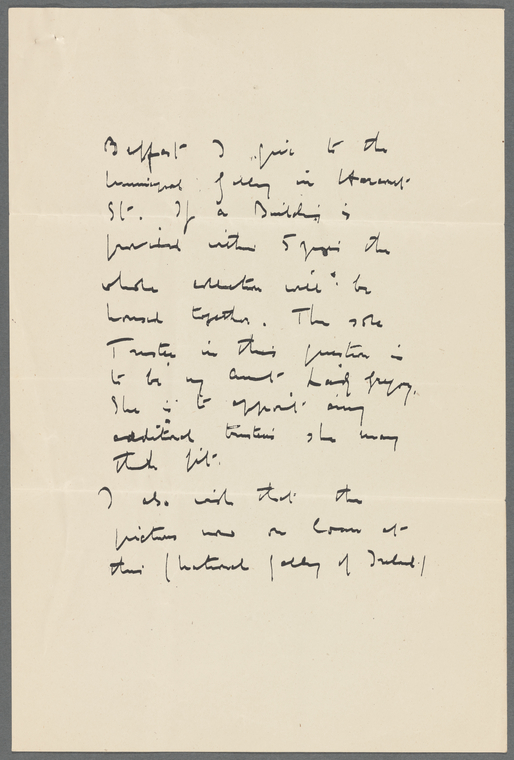 Belfast I give to the
Municipal Gallery in Harcourt
St. If a Building is
provided within 5 years the
whole collection will be
housed together. The sole
Trustee in this question is
to be my Aunt Lady Gregory.
She is to appoint any
additional trustees she may
think fit.
I also wish that the
pictures now on loan at
this (National Gallery of Ireland)